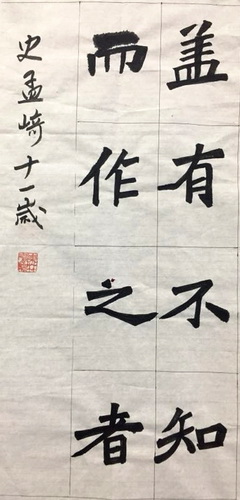 盖有不知
而作之者
史孟崎十一歲